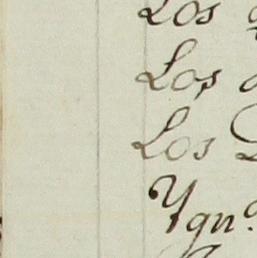 Los
Los
Los
Ygn.º